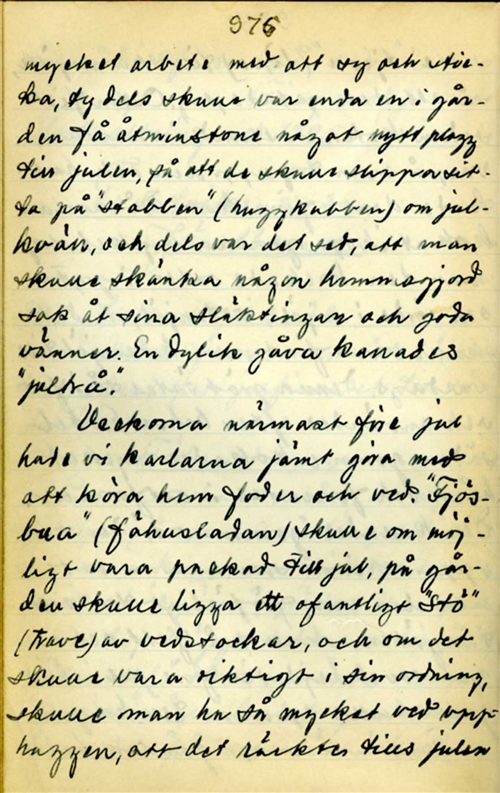 976
mycket arbete med att sy och stic-
ka, ty dels skulle var enda en i går-
den få åtminstone något nytt plagg
till julen, så att de skulle slippa sit-
ta på "stabben" (huggkubben) om jul-
kväll, och dels var det sed, att man
skulle skänka någon hemmagjord
sak åt sina släktingar och goda
vänner. En dylik gåva kallades
"jultrå".
Veckorna närmast före jul
hade vi karlarna jämt göra med
att köra hem foder och ved. "Fjös-
bua" (fähusladan) skulle om möj-
ligt vara packad till jul, på går-
den skulle ligga ett ofantligt "stö"
(trave) av vedstockar, och om det
skulle vara riktigt i sin ordning,
skulle man ha så mycket ved upp-
huggen, att det räcktes tills julen